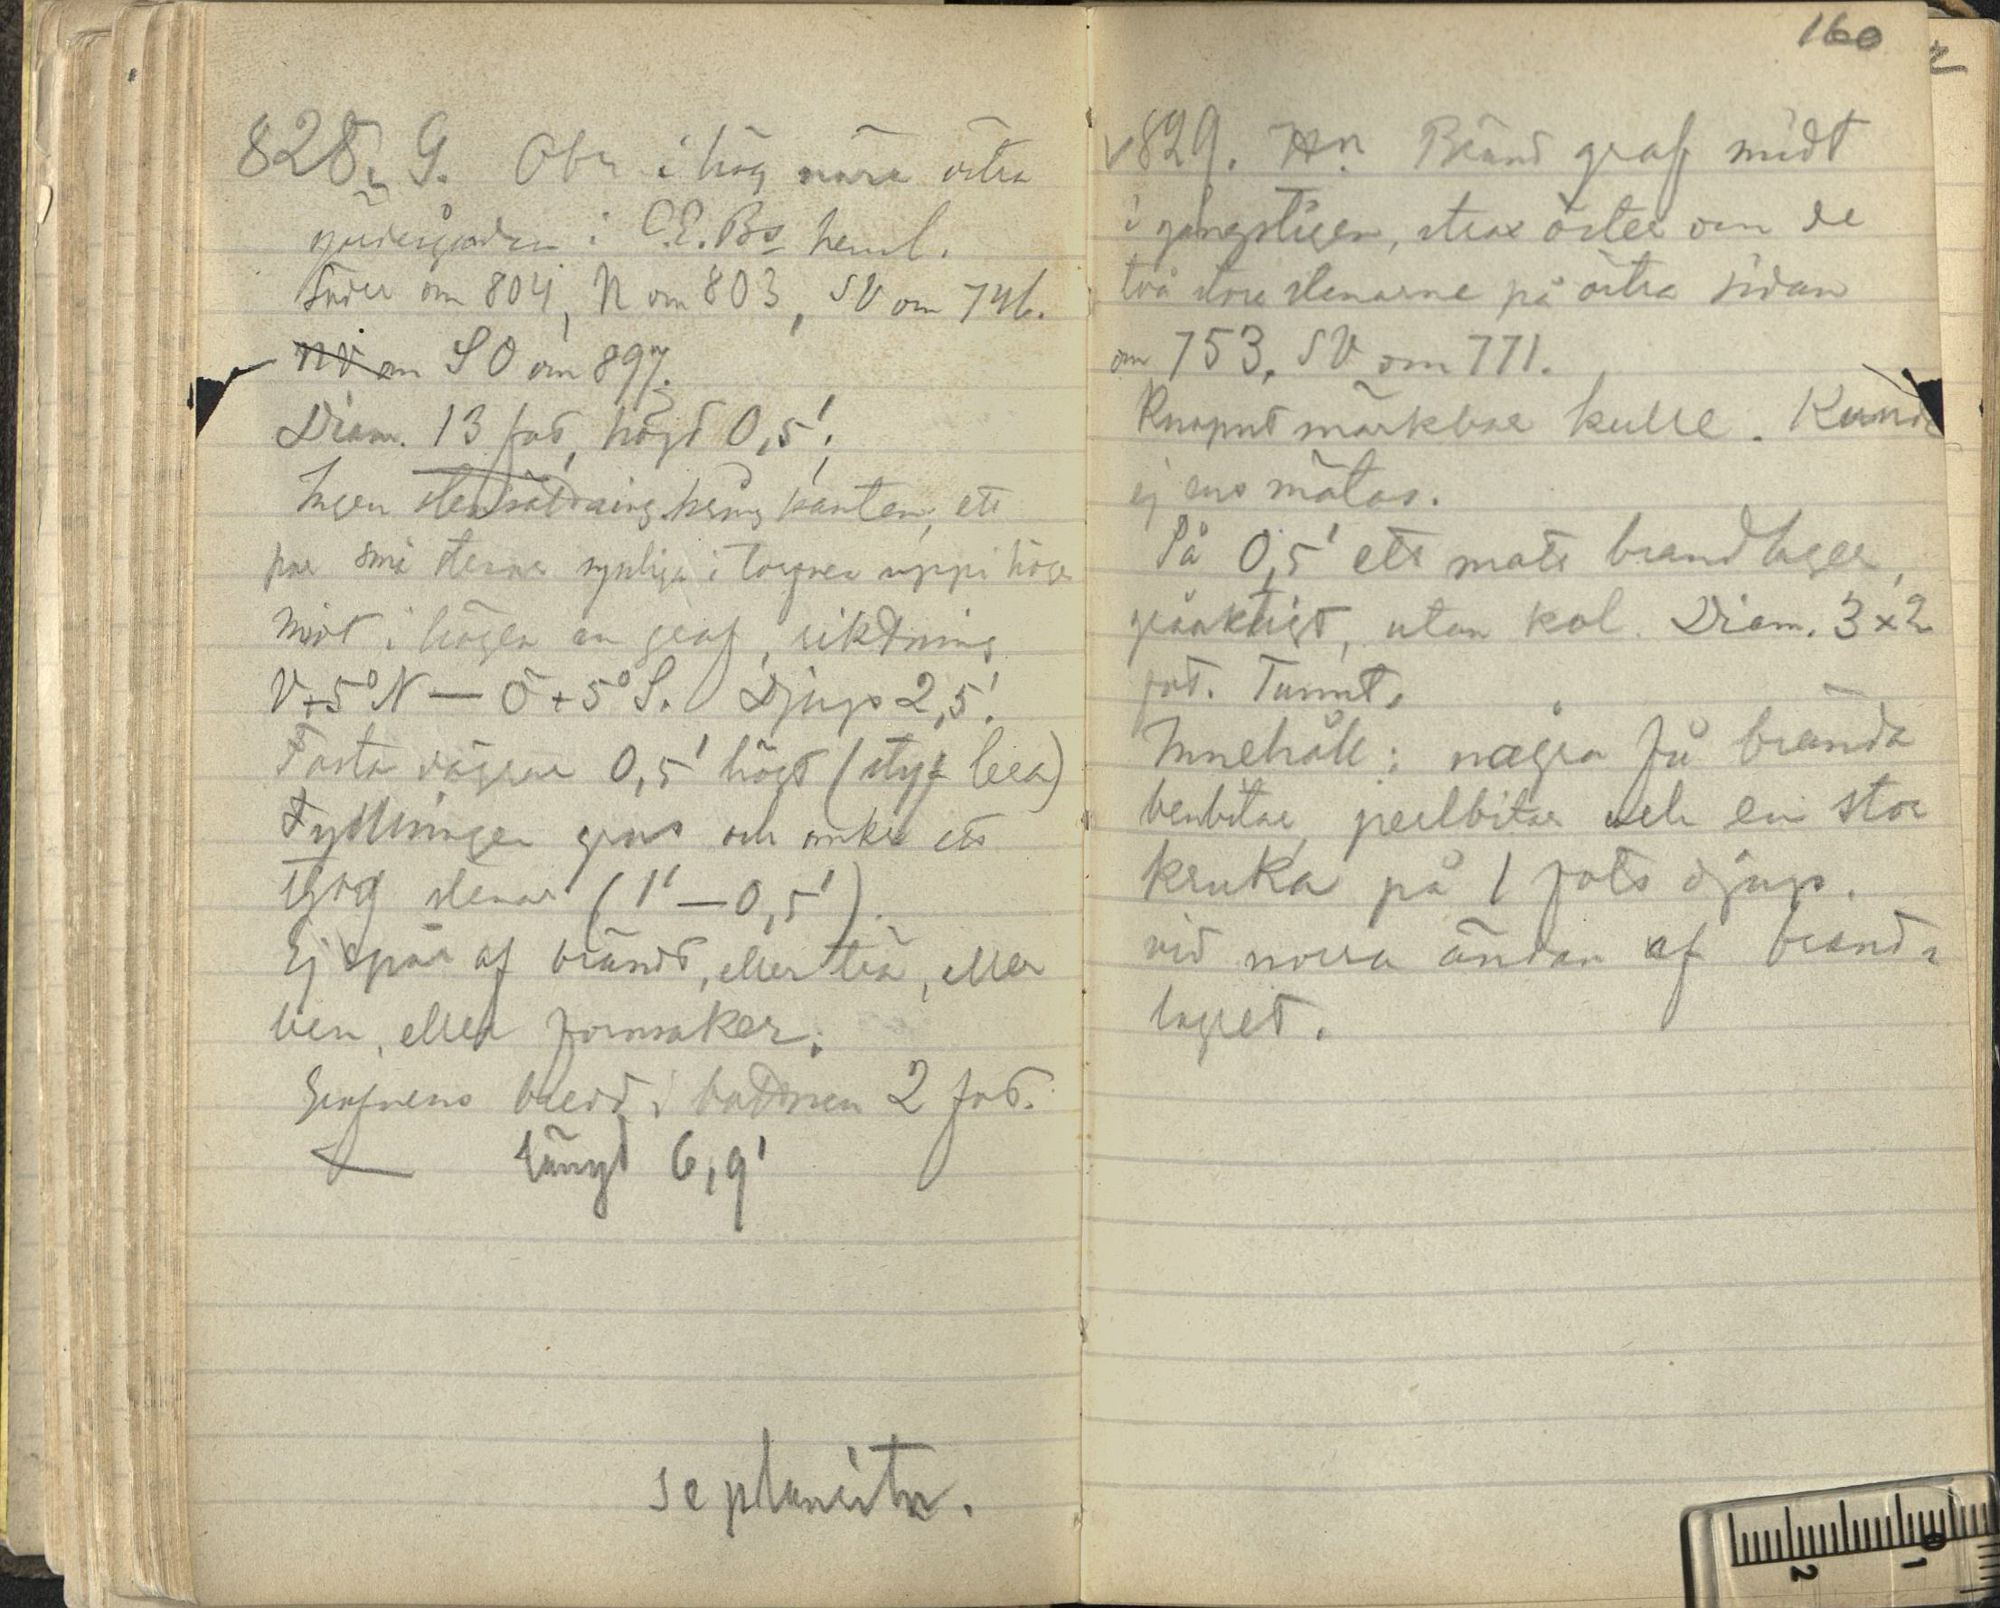 828. G. Obr i hög nära östra
gärdesgården i C.E.Bs heml.
Söder om 804, N om 803, SV om 746.
NV om SO om 897.
Diam. 13 fot, högd 0,5'.
Ingen stensättning kring kanten, ett
par små stenar synliga i torfven uppi högen
Midt i högen en graf, riktning
V+5°N — Ö+5°S. Djup 2,5'.
Fasta väggar 0,5' högt (styf lera)
Fyllningen grus och mks ett
tjog stenar (1' — 0,5').
Ej spår af brändt, eller trä, eller
ben, eller fornsaker.
Grafvens bredd i bottnen 2 fot.
längd 6,9'
se planritn.
160
v 829. Hn Bränd graf midt
i gångstigen, strax öster om de
två stora stenarne på östra sidan
om 753, SV om 771.
Knapnt märkbar kulle. Kunde
ej ens mätas.
På 0,5' ett matt brandlager,
gråaktigt, utan kol. Diam. 3x2
fot. Tunnt.
Innehåll: några få brända
benbitar, perlbitar och en stor
kruka på 1 fots djup.
vid norra ändan af brand-
lagret.